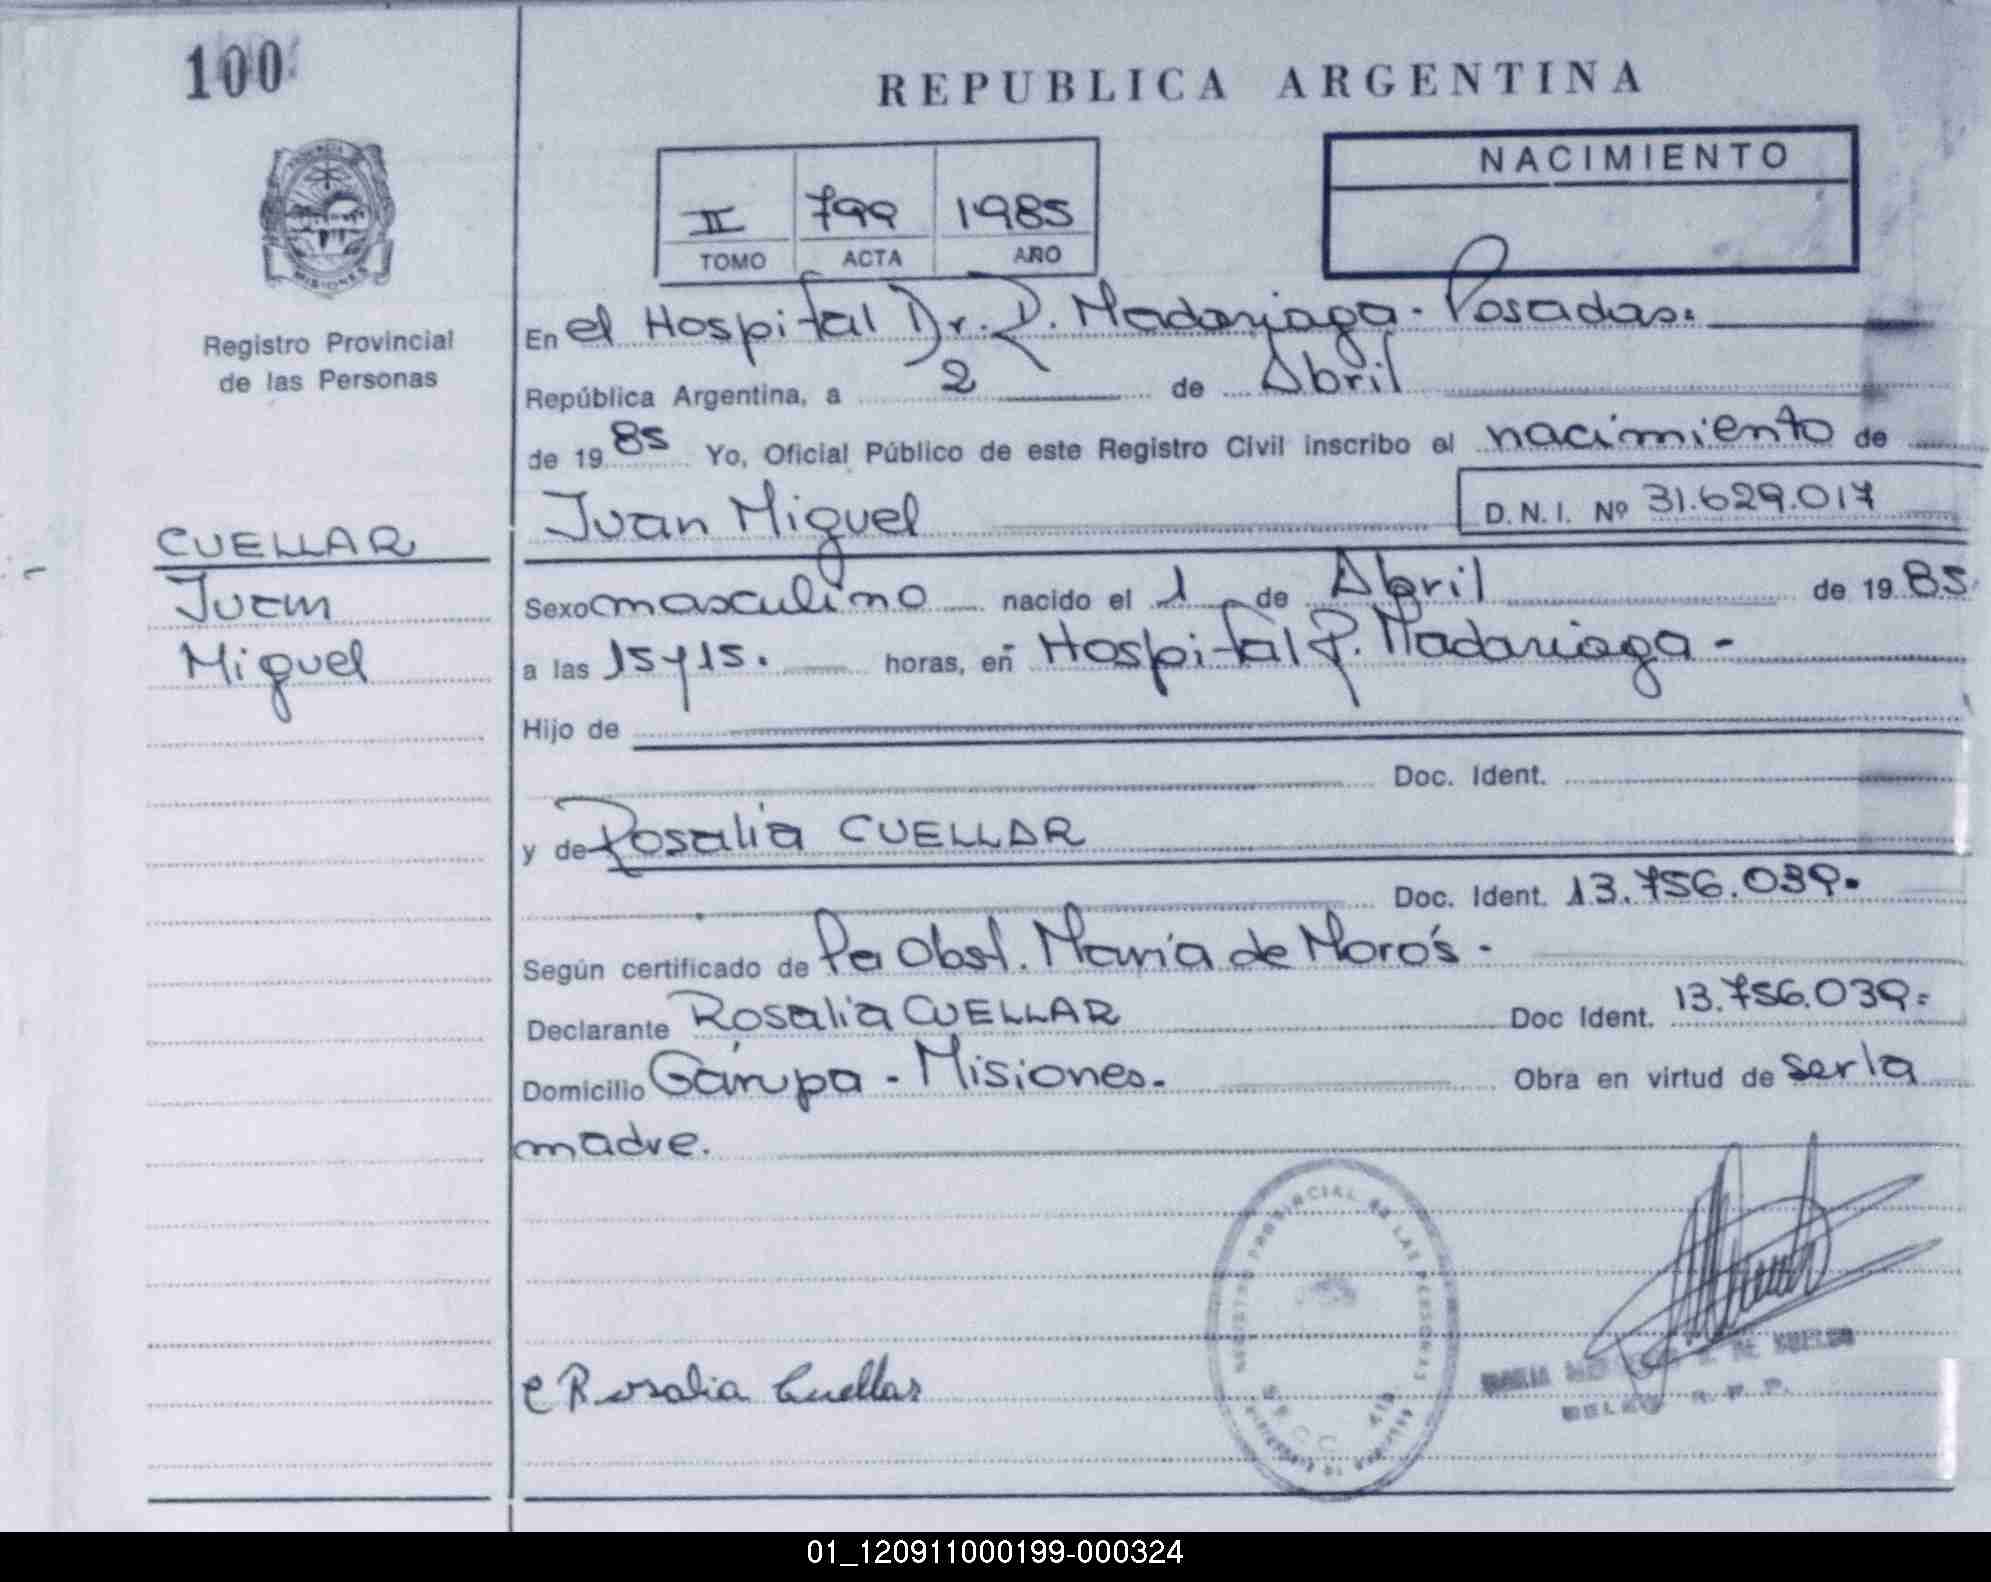 100
REPUBLICA ARGENTINA
NACIMIENTO
II 799 1985
TOMO ACTA AÑO
MISIONES
Registro Provincial
de las Personas
En el Hospital Dr. R. Madariaga - Posadas.
República Argentina, a 2 de Abril
de 1985 Yo, Oficial Público de este Registro Civil inscribo el nacimiento de
Juan Miguel D.N.I. Nº 31.629.017
CUELLAR
Juan
Miguel
Sexo masculino nacido el 1 de Abril de 1985
a las 15 y 15. horas, en Hospital R. Madariaga -
Hijo de
Doc. Ident.
y de Rosalia CUELLAR
Doc. Ident. 13.756.039.
Según certificado de la Obst. María de Morós -
Declarante Rosalia CUELLAR Doc Ident. 13.756.039.=
Domicilio Garupa - Misiones. Obra en virtud de ser la
madre.
REGISTRO PROVINCIAL DE LAS PERSONAS
Rosalia Cuellar
MARIA DE
R. P. P.
01_120911000199-000324